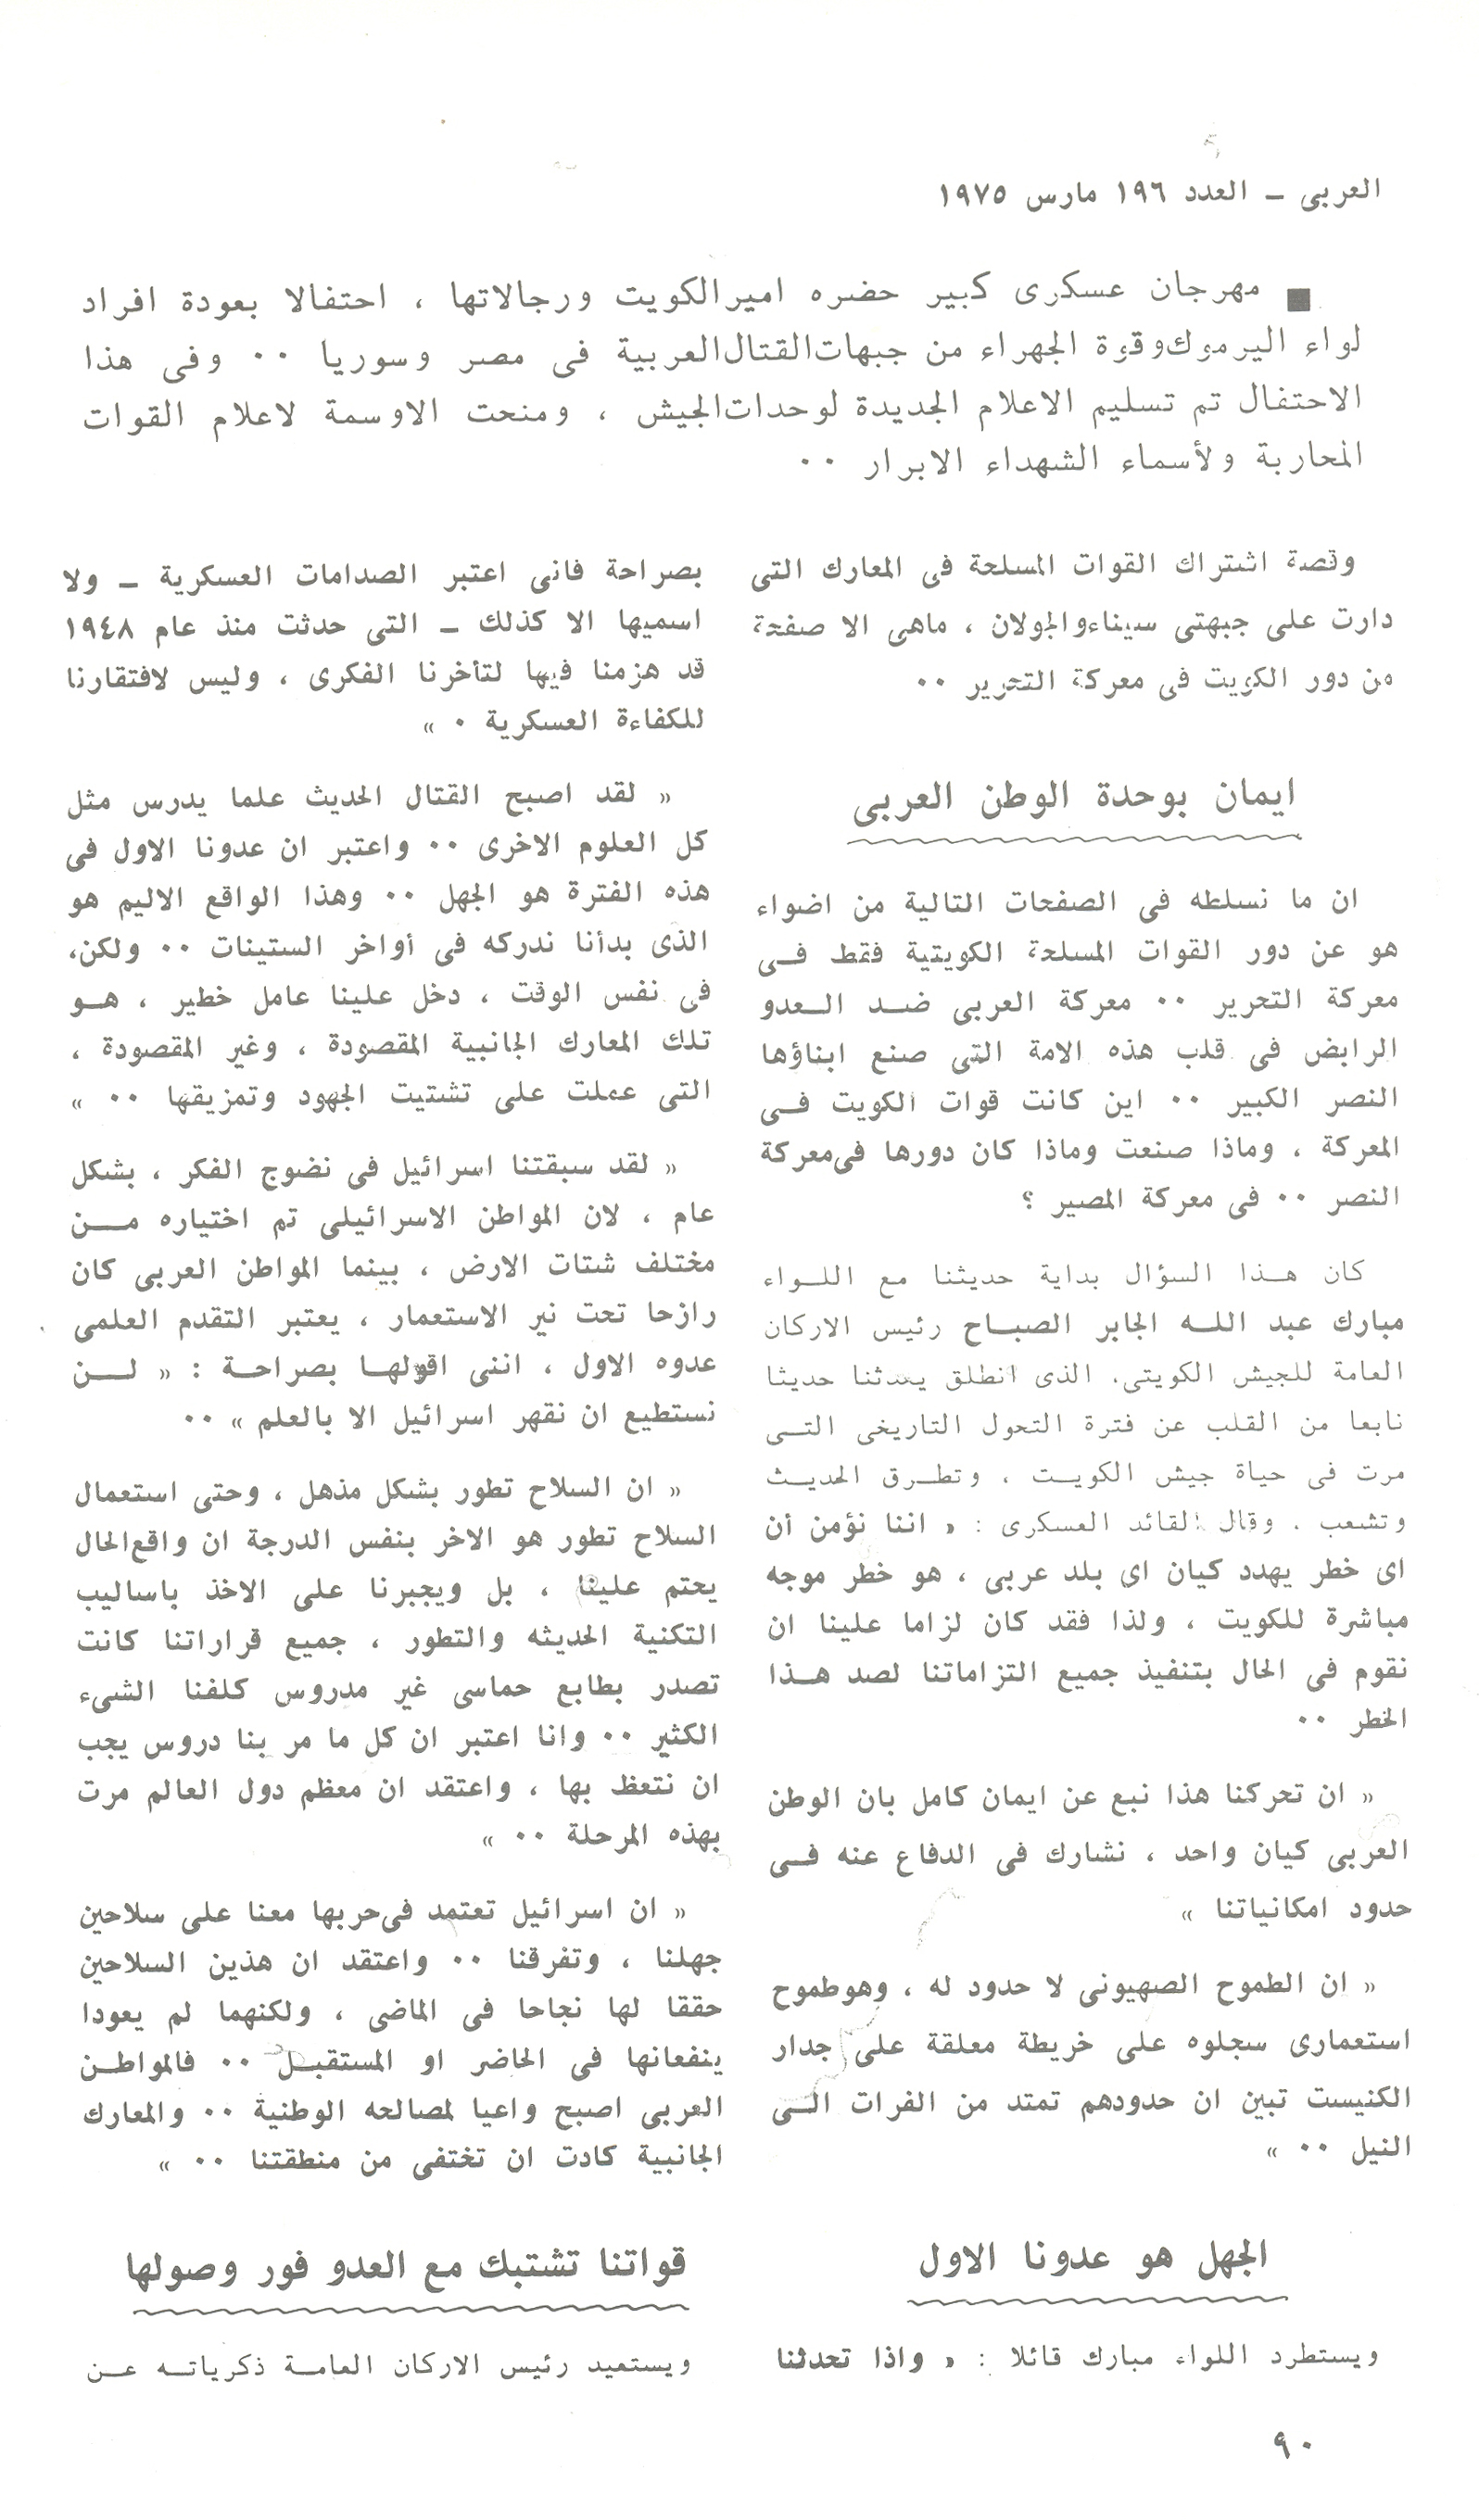 العربى ــ العدد ١٩٦ مارس ١٩٧٥
■ مهرجان عسكرى كبير حضره امير الكويت ورجالاتها ، احتفالا بعودة افراد
لواء اليرموك وقوة الجهراء من جبهات القتال العربية فى مصر وسوريا ٠٠ وفى هذا
الاحتفال تم تسليم الاعلام الجديدة لوحدات الجيش ، ومنحت الاوسمة لاعلام القوات
المحاربة ولأسماء الشهداء الابرار ٠٠
وقصة اشتراك القوات المسلحة فى المعارك التى
دارت على جبهتى سيناء والجولان ، ماهى الا صفحة
من دور الكويت فى معركة التحرير ٠٠
ايمان بوحدة الوطن العربى
ان ما نسلطه فى الصفحات التالية من اضواء
هو عن دور القوات المسلحة الكويتية فقط فــى
معركة التحرير ٠٠ معركة العربى ضــد العــدو
الرابض فى قلب هذه الامة التى صنع ابناؤها
النصر الكبير ٠٠ اين كانت قوات الكويت فــى
المعركة ، وماذا صنعت وماذا كان دورها فى معركة
النصر ٠٠ فى معركة المصير ؟
كان هــذا السؤال بداية حديثنا مع اللــواء
مبارك عبد اللــه الجابر الصبــاح رئيس الاركان
العامة للجيش الكويتى، الذى انطلق يحدثنا حديثا
نابعا من القلب عن فترة التحول التاريخى التــى
مرت فى حياة جيش الكويــت ، وتطــرق الحديــث
وتشعب . وقال القائد العسكرى : « اننا نؤمن أن
اى خطر يهدد كيان اى بلد عربى ، هو خطر موجه
مباشرة للكويت ، ولذا فقد كان لزاما علينا ان
نقوم فى الحال بتنفيذ جميع التزاماتنا لصد هــذا
الخطر ٠٠
« ان تحركنا هذا نبع عن ايمان كامل بان الوطن
العربى كيان واحد ، نشارك فى الدفاع عنه فــى
حدود امكانياتنا »
« ان الطموح الصهيونى لا حدود له ، وهو طموح
استعمارى سجلوه على خريطة معلقة على جدار
الكنيست تبين ان حدودهم تمتد من الفرات الــى
النيل ٠٠ »
الجهل هو عدونا الاول
ويستطرد اللواء مبارك قائلا : « واذا تحدثنا
بصراحة فانى اعتبر الصدامات العسكرية ــ ولا
اسميها الا كذلك ــ التى حدثت منذ عام ١٩٤٨
قد هزمنا فيها لتأخرنا الفكرى ، وليس لافتقارنا
للكفاءة العسكرية ٠ »
« لقد اصبح القتال الحديث علما يدرس مثل
كل العلوم الاخرى ٠٠ واعتبر ان عدونا الاول فى
هذه الفترة هو الجهل ٠٠ وهذا الواقع الاليم هو
الذى بدأنا ندركه فى أواخر الستينات ٠٠ ولكن،
فى نفس الوقت ، دخل علينا عامل خطير ، هــو
تلك المعارك الجانبية المقصودة ، وغير المقصودة ،
التى عملت على تشتيت الجهود وتمزيقها ٠٠ »
« لقد سبقتنا اسرائيل فى نضوج الفكر ، بشكل
عام ، لان المواطن الاسرائيلى تم اختياره مــن
مختلف شتات الارض ، بينما المواطن العربى كان
رازحا تحت نير الاستعمار ، يعتبر التقدم العلمى
عدوه الاول ، اننى اقولهــا بصراحــة : « لــن
نستطيع ان نقهر اسرائيل الا بالعلم » ٠٠
« ان السلاح تطور بشكل مذهل ، وحتى استعمال
السلاح تطور هو الاخر بنفس الدرجة ان واقع الحال
يحتم علينا ، بل ويجبرنا على الاخذ باساليب
التكنية الحديثه والتطور ، جميع قراراتنا كانت
تصدر بطابع حماسى غير مدروس كلفنا الشىء
الكثير ٠٠ وانا اعتبر ان كل ما مر بنا دروس يجب
ان نتعظ بها ، واعتقد ان معظم دول العالم مرت
بهذه المرحلة ٠٠ »
« ان اسرائيل تعتمد فى حربها معنا على سلاحين
جهلنا ، وتفرقنا ٠٠ واعتقد ان هذين السلاحين
حققا لها نجاحا فى الماضى ، ولكنهما لم يعودا
ينفعانها فى الحاضر او المستقبــل ٠٠ فالمواطــن
العربى اصبح واعيا لمصالحه الوطنية ٠٠ والمعارك
الجانبية كادت ان تختفى من منطقتنا ٠٠ »
قواتنا تشتبك مع العدو فور وصولها
ويستعيد رئيس الاركان العامــة ذكرياتــه عــن
٩٠